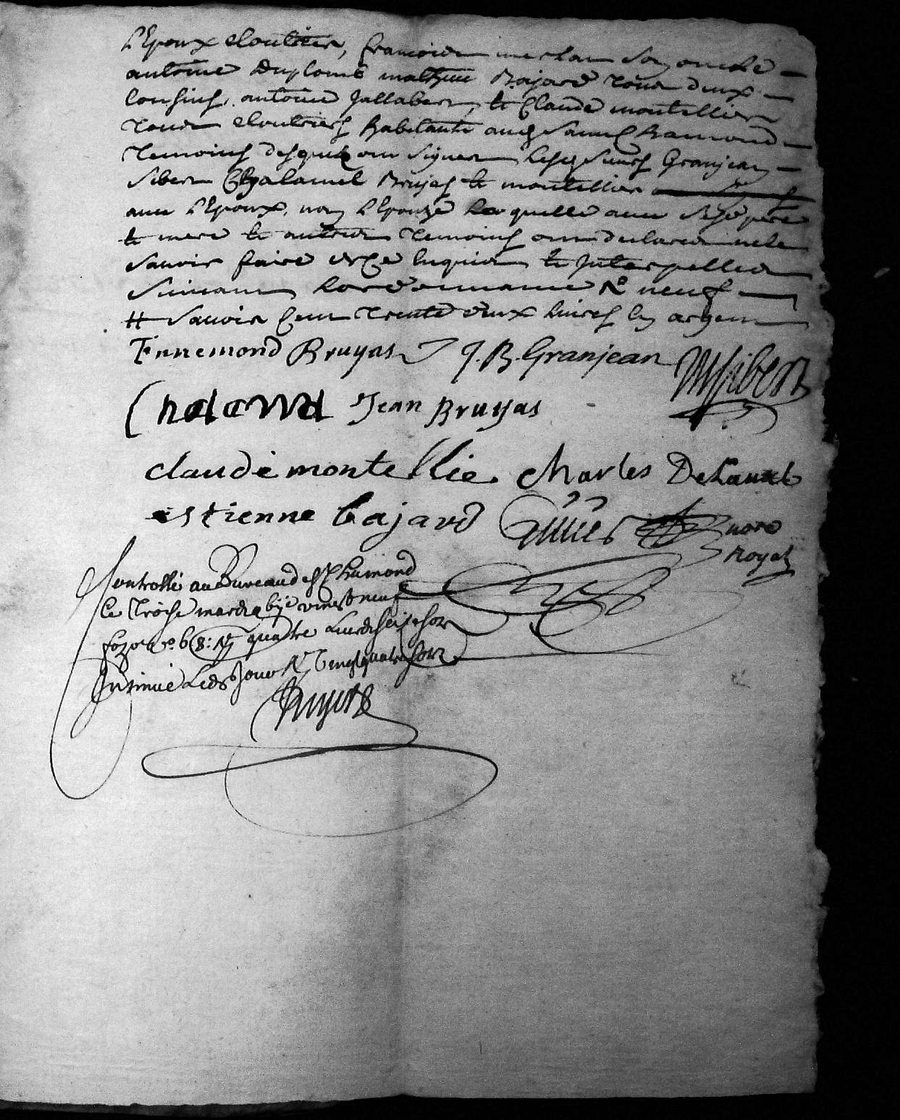 L'Epoux cloutier, francois merchan son oncle
antoine Duplomb mathieu Bajard tous deux
cousins, antoine Jallabert, et Claude montellier
tous cloutiers habitants aud saint Ramond
temoins desquels ont signé lesd sieurs Granjean
Siber Chalamel Bruyas et montellier
avec l'Epoux, non l'Epouse laquelle avec sesd pere
et mere et autres temoins ont declaré ne le
savoir faire de ce enquis et Interpellés
suivant l'ordonnance neuf
# savoir cent trente deux livres en argent
Ennemond Bruyas J. B. Granjean Msiber
Jean Bruyas
claude montellie charles Delaval
estienne bajard nore
Royal
Controllé au Bureau de St Rumond
Le Troise mars vingt neuf
fo quatre Livres seize sols
Insinué Led Jour vingt quatre sols